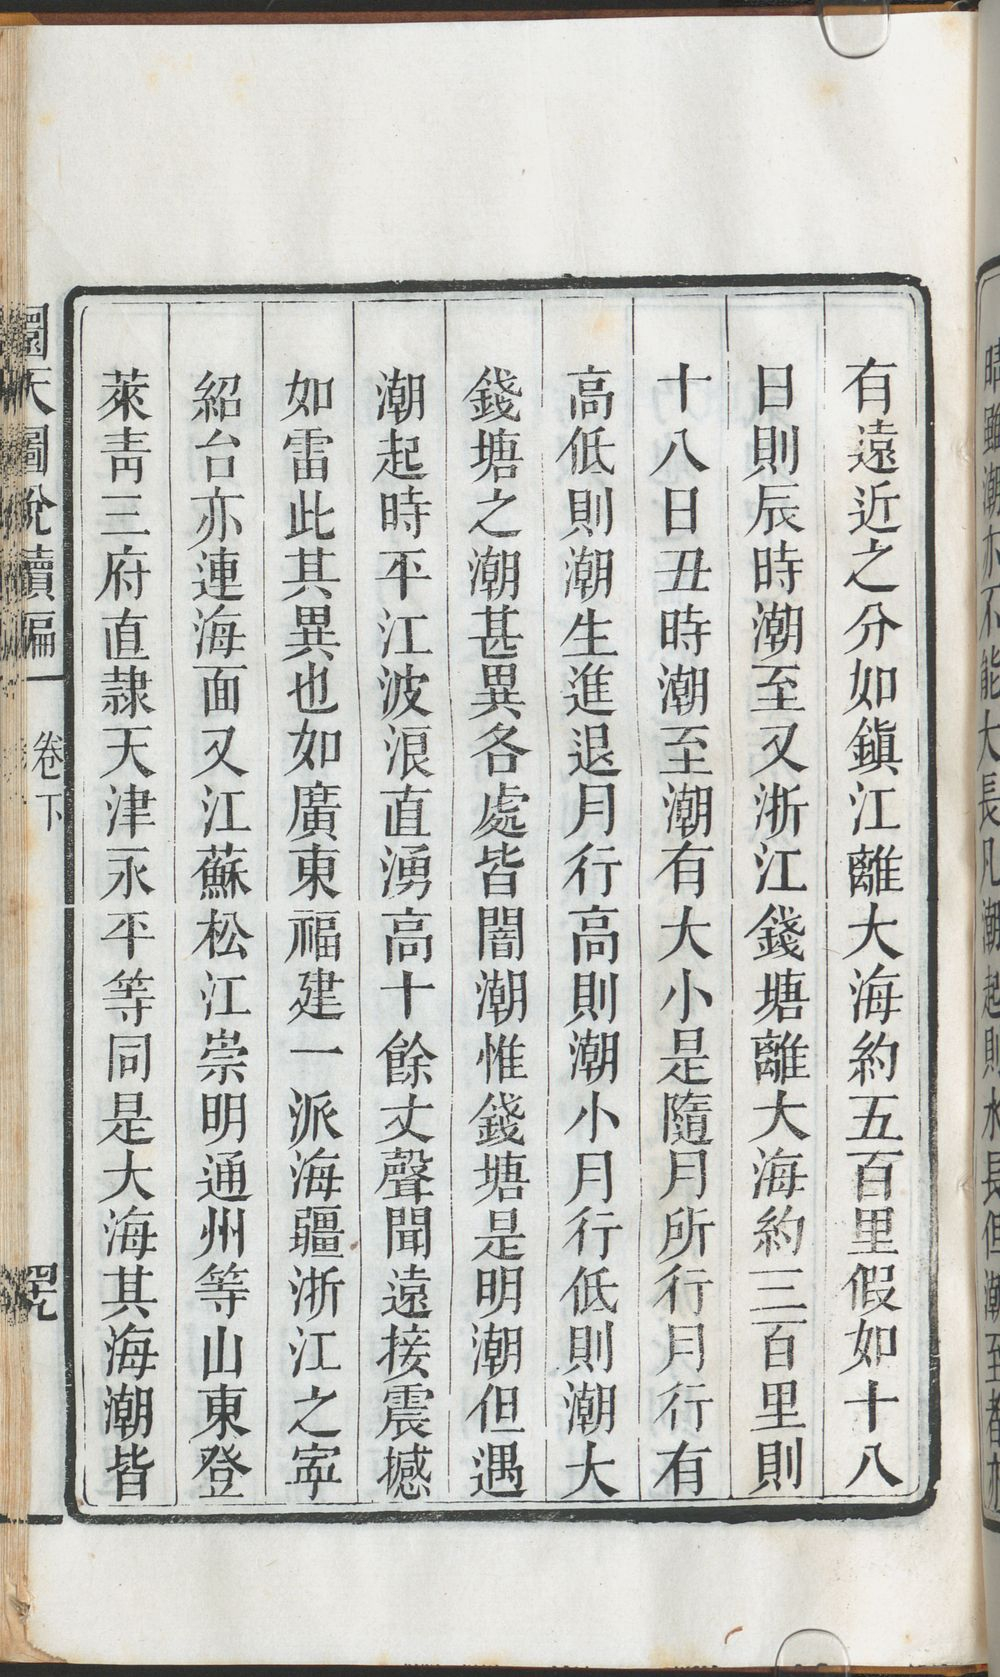 有遠近之分如鎮江離大海約五百里假如十八
日則辰時潮至又浙江錢塘離大海約三百里則
十八日丑時潮至潮有大小是隨月所行月行有
高低則潮生進退月行高則潮小月行低則潮大
錢塘之潮甚異各處皆闇潮惟錢塘是明潮但遇
潮起時平江波浪直湧高十餘丈聲聞遠接震撼
如雷此其異也如廣東福建一派海疆浙江之寕
紹台亦連海面又江蘇松江崇明通州等山東登
萊靑三府直隷天津永平等同是大海其海潮皆
圜天圖說續編 卷下
晴雖潮亦不能大長凡潮起則水長但潮至